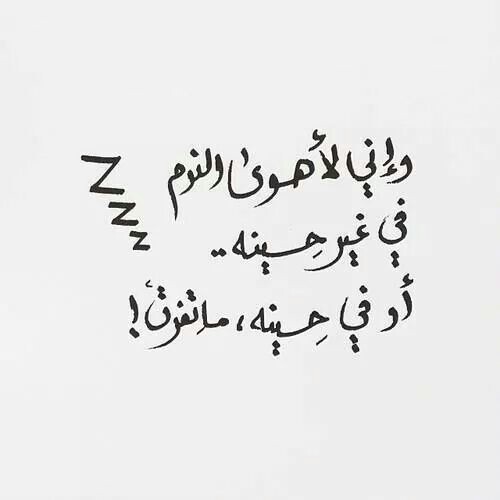 وإني لأهوىٰ النوم
في غير حِينه..
أو في حِينه، ماتفرقْ!
Z
Z
Z
Z